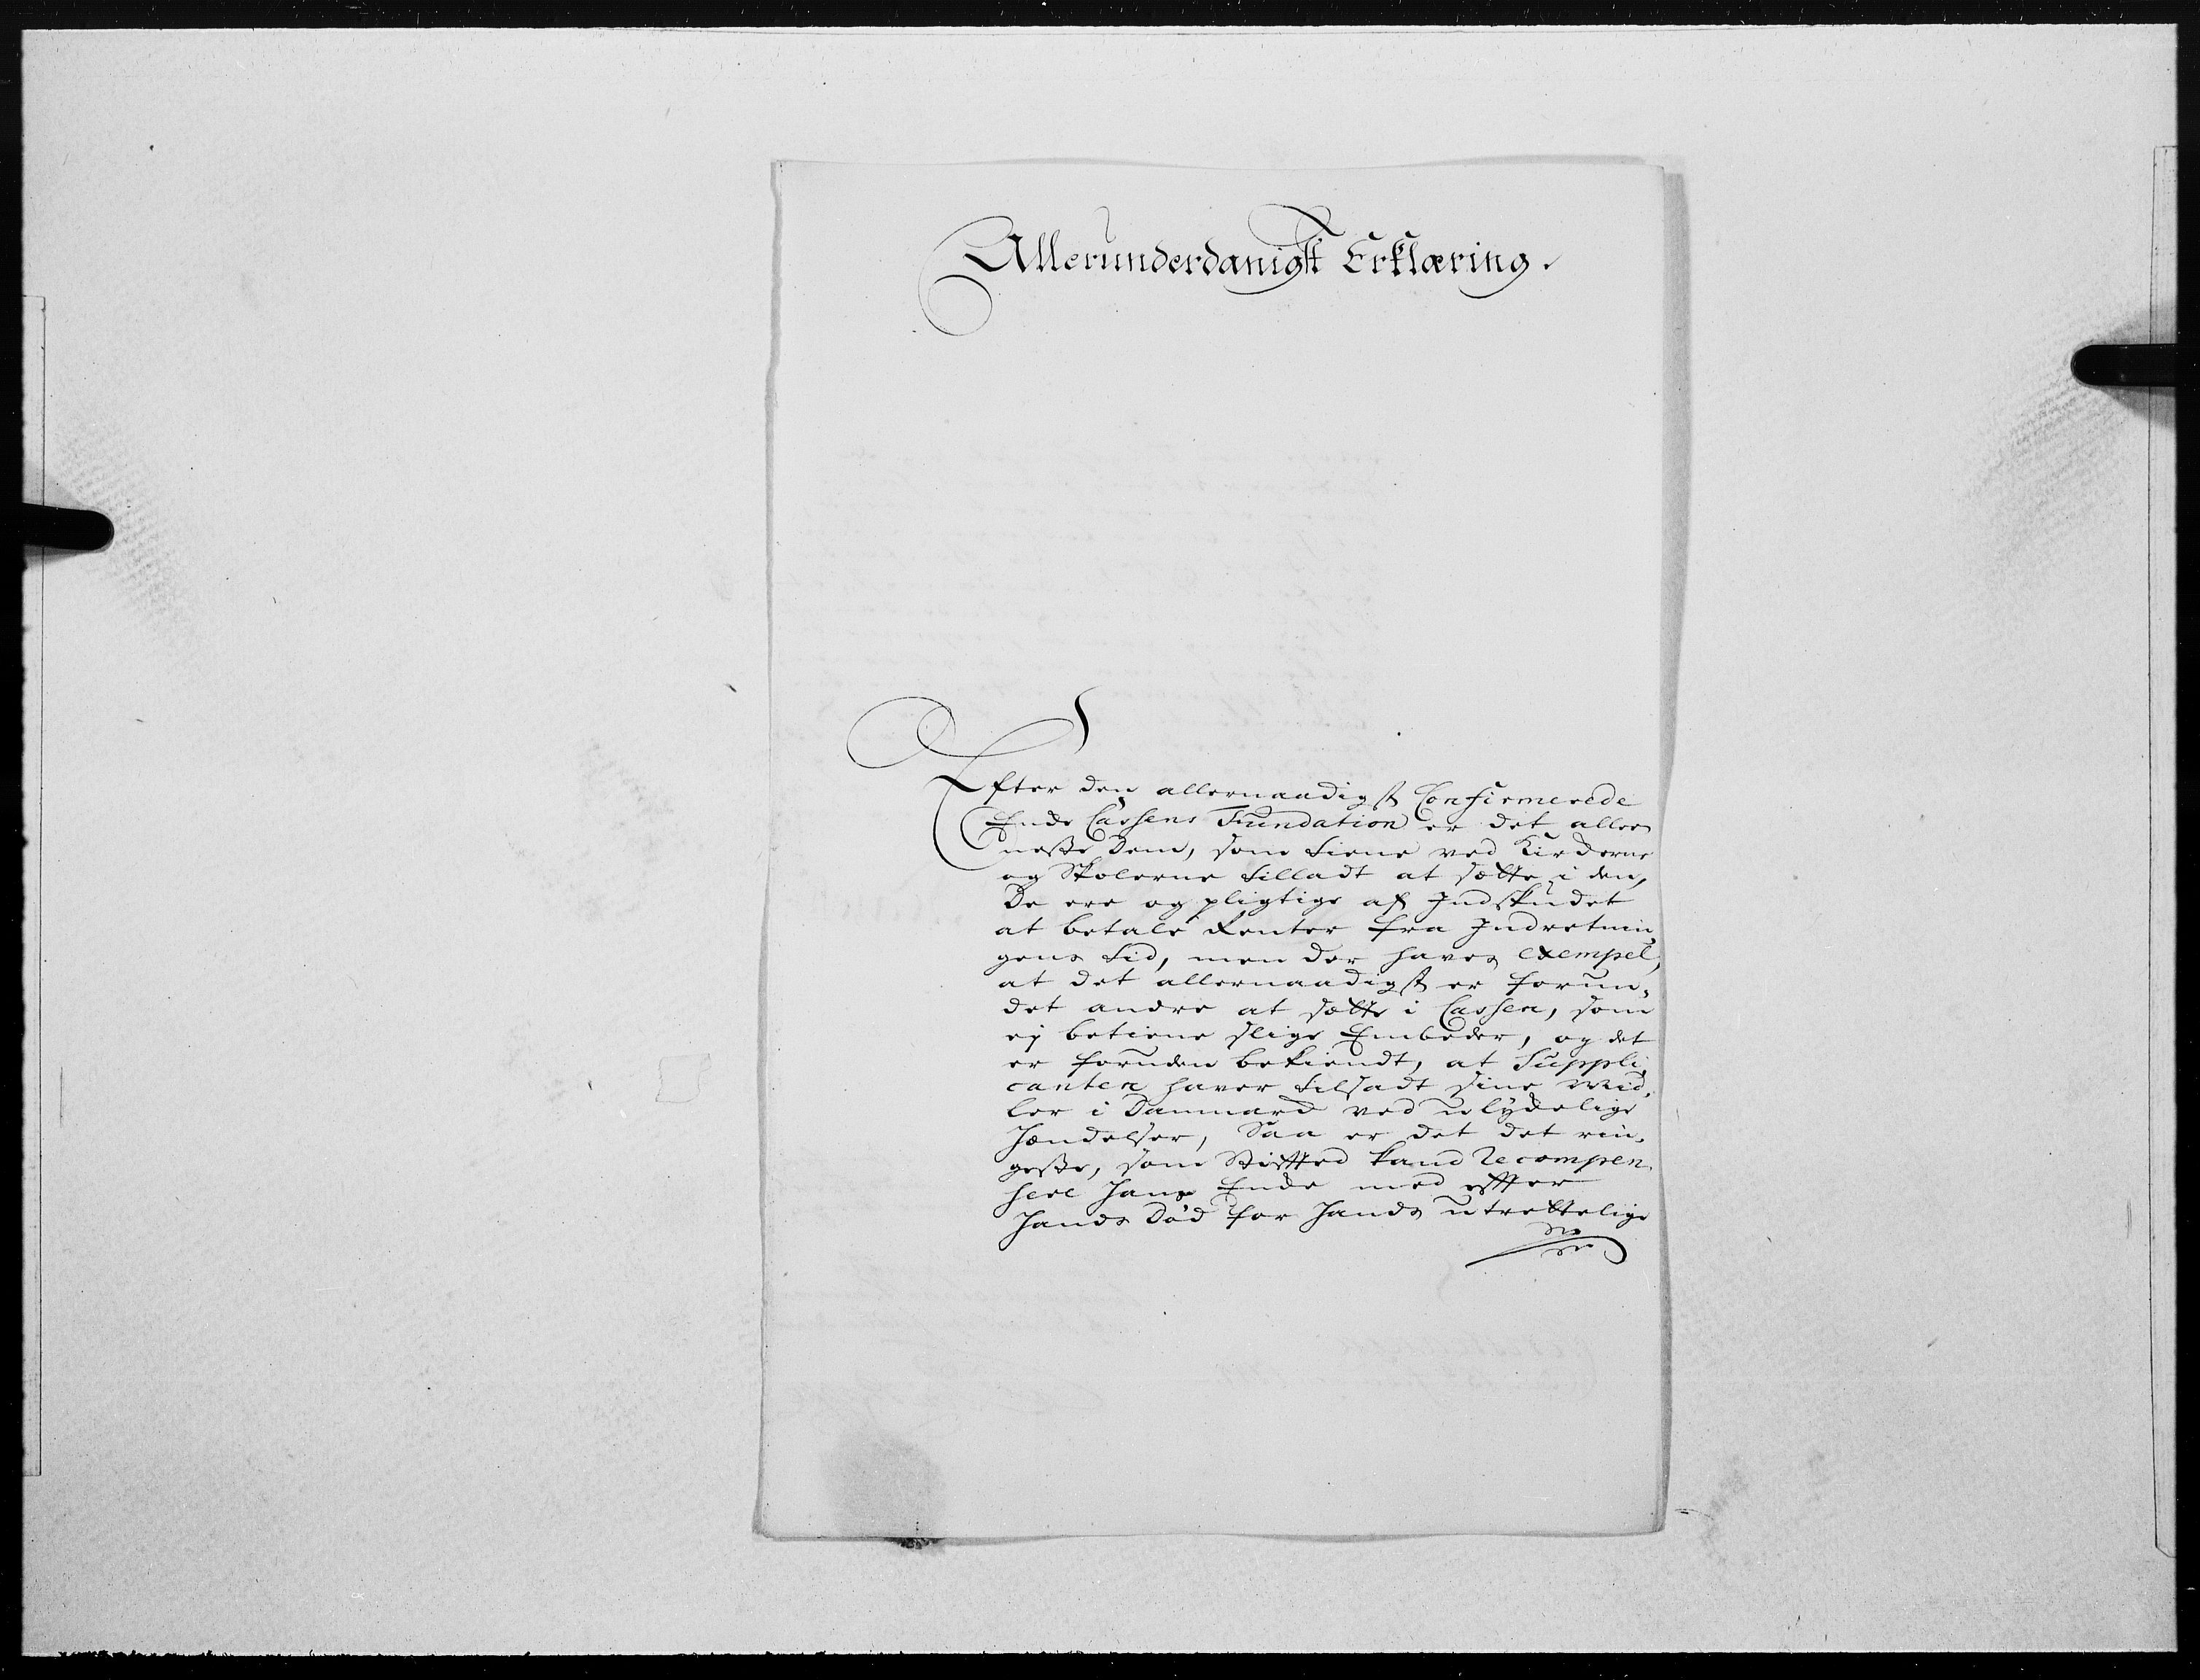 Allerunderdanigst Erklæring.
Efter den allernaadigst Confirmerede
Enke Cassens Fundation er det allee
neste dem, som tiene ved Kirckerne
og Skolerne tilladt at sætte i den,
De ere og pligtige af Indskudet
at betale Renter fra Indretnin„
gens tid, men der haves exempel,
at det allernaadigst er forun„
det andre at sætte i Cassen, som
ej betiene slige Embeder, og det
er foruden bekiendt, at Suppli„
canten haver tilsadt sine Mid„
ler i Danmarck ved ulydelige
Hændelser, Saa er det det rin„
geste, som Stifttet kand Recompen„
sere hans Enke med effter
hands Død for hands utrettelige